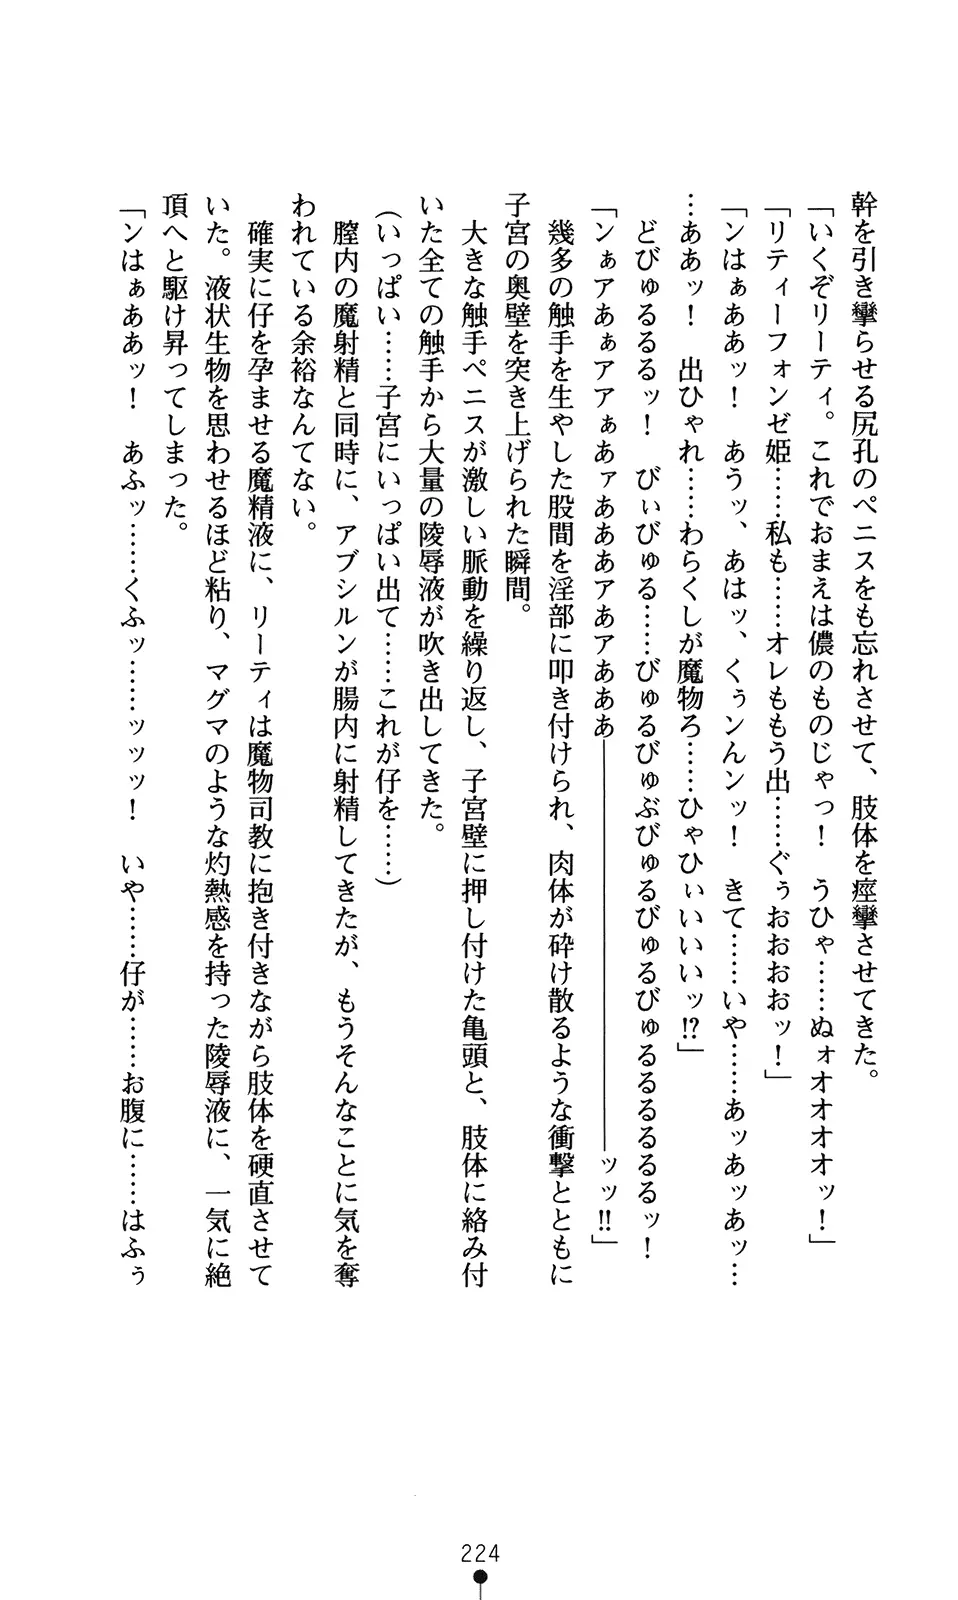 幹を引き攣らせる尻孔のペニスをも忘れさせて、肢体を痙攣させてきた。
「いくぞリーティ。これでおまえは儂のものじゃっ！　うひゃ……ぬォオオオオッ！」
「リティーフォンゼ姫……私も……オレももう出……ぐぅおおおおッ！」
「ンはぁああッ！　あうッ、あはッ、くぅンんンッ！　きて……いや……あッあッあッ…
…ああッ！　出ひゃれ……わらくしが魔物ろ……ひゃひぃいいいッ!?」
　どびゅるるるッ！　びぃびゅる……びゅるびゅぶびゅるびゅるびゅるるるるるッ！
「ンぁアあぁアアぁあァあああアあアあああ――――――――――ッッ!!」
　幾多の触手を生やした股間を淫部に叩き付けられ、肉体が砕け散るような衝撃とともに
子宮の奥壁を突き上げられた瞬間。
　大きな触手ペニスが激しい脈動を繰り返し、子宮壁に押し付けた亀頭と、肢体に絡み付
いた全ての触手から大量の陵辱液が吹き出してきた。
（いっぱい……子宮にいっぱい出て……これが仔を……）
　膣内の魔射精と同時に、アブシルンが腸内に射精してきたが、もうそんなことに気を奪
われている余裕なんてない。
　確実に仔を孕ませる魔精液に、リーティは魔物司教に抱き付きながら肢体を硬直させて
いた。液状生物を思わせるほど粘り、マグマのような灼熱感を持った陵辱液に、一気に絶
頂へと駆け昇ってしまった。
「ンはぁああッ！　あふッ……くふッ……ッッッ！　いや……仔が……お腹に……はふぅ
224